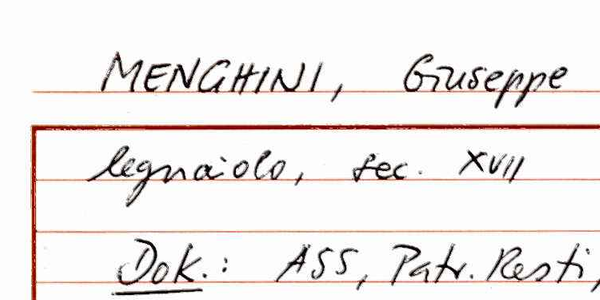 MENGHINI, Giuseppe
legnaiolo, sec. XVII
Dok.: ASS, Patr. Resti,